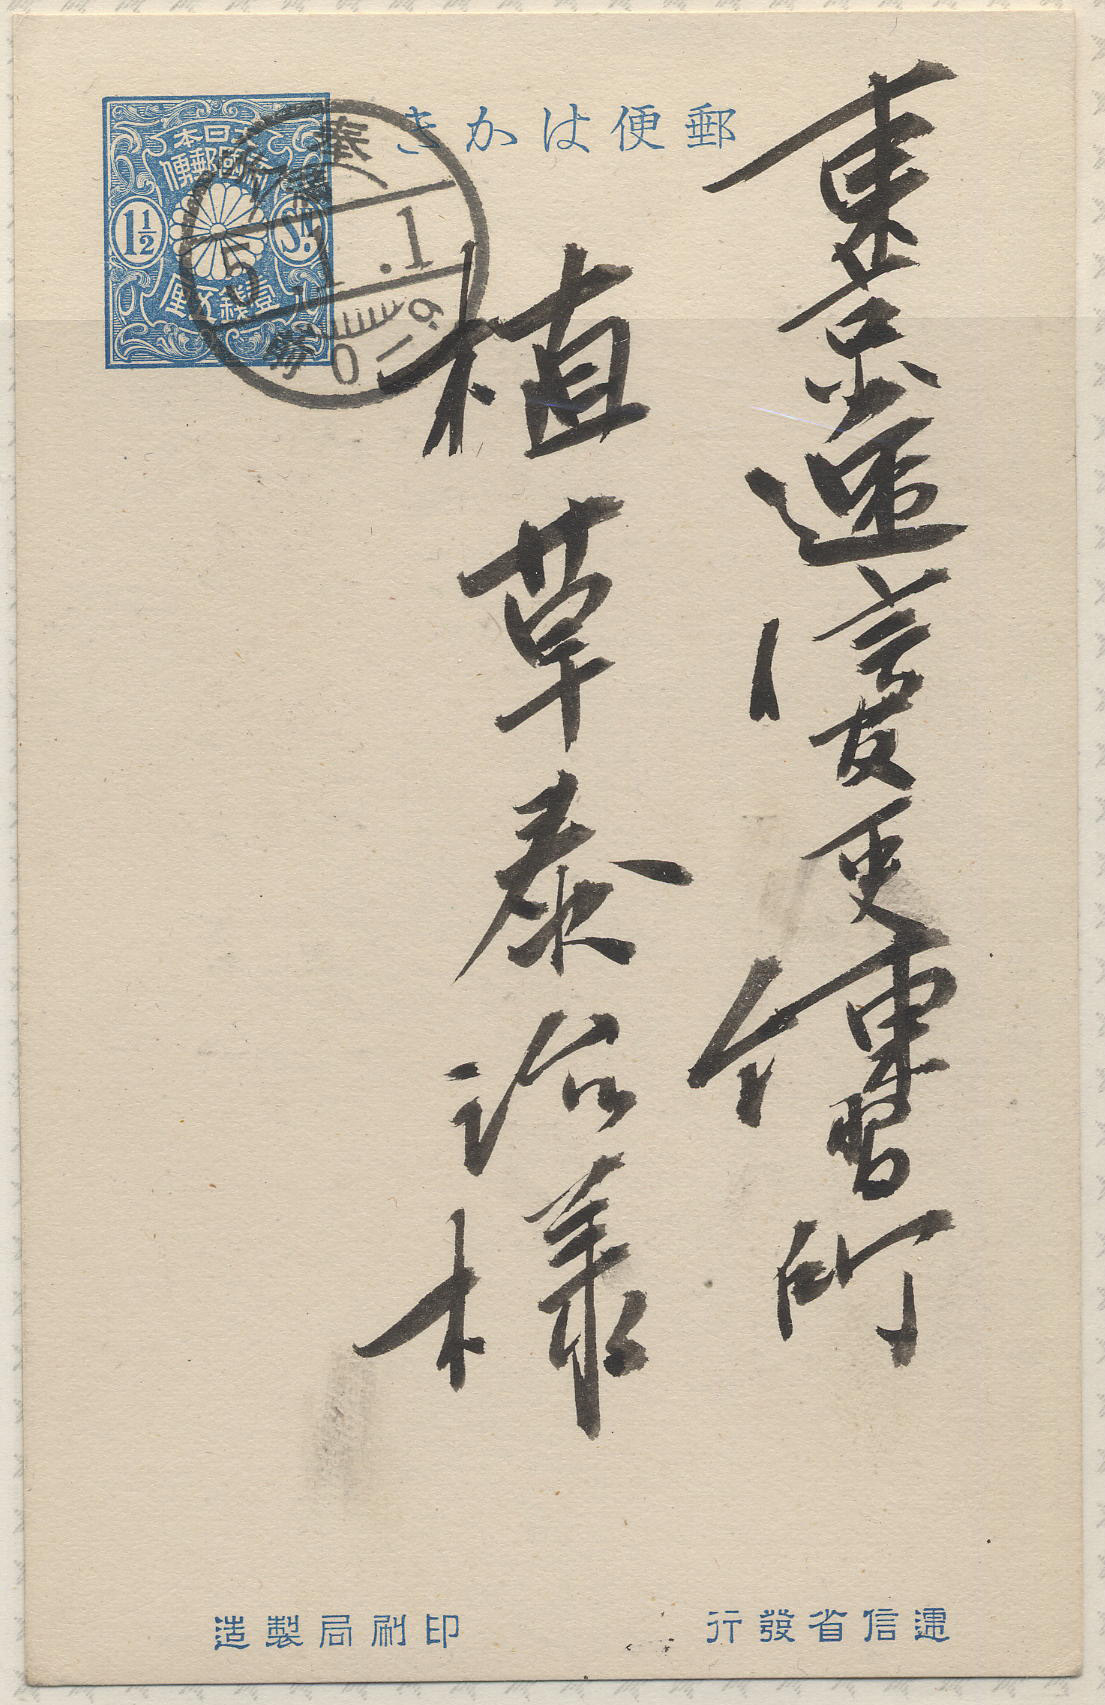 郵便はかき
大日本
帝國郵便
1½
Sn.
壹錢五厘
奉
5.1.1
東京逓信吏員傳習所
植草泰治様
逓信省發行
印刷局製造